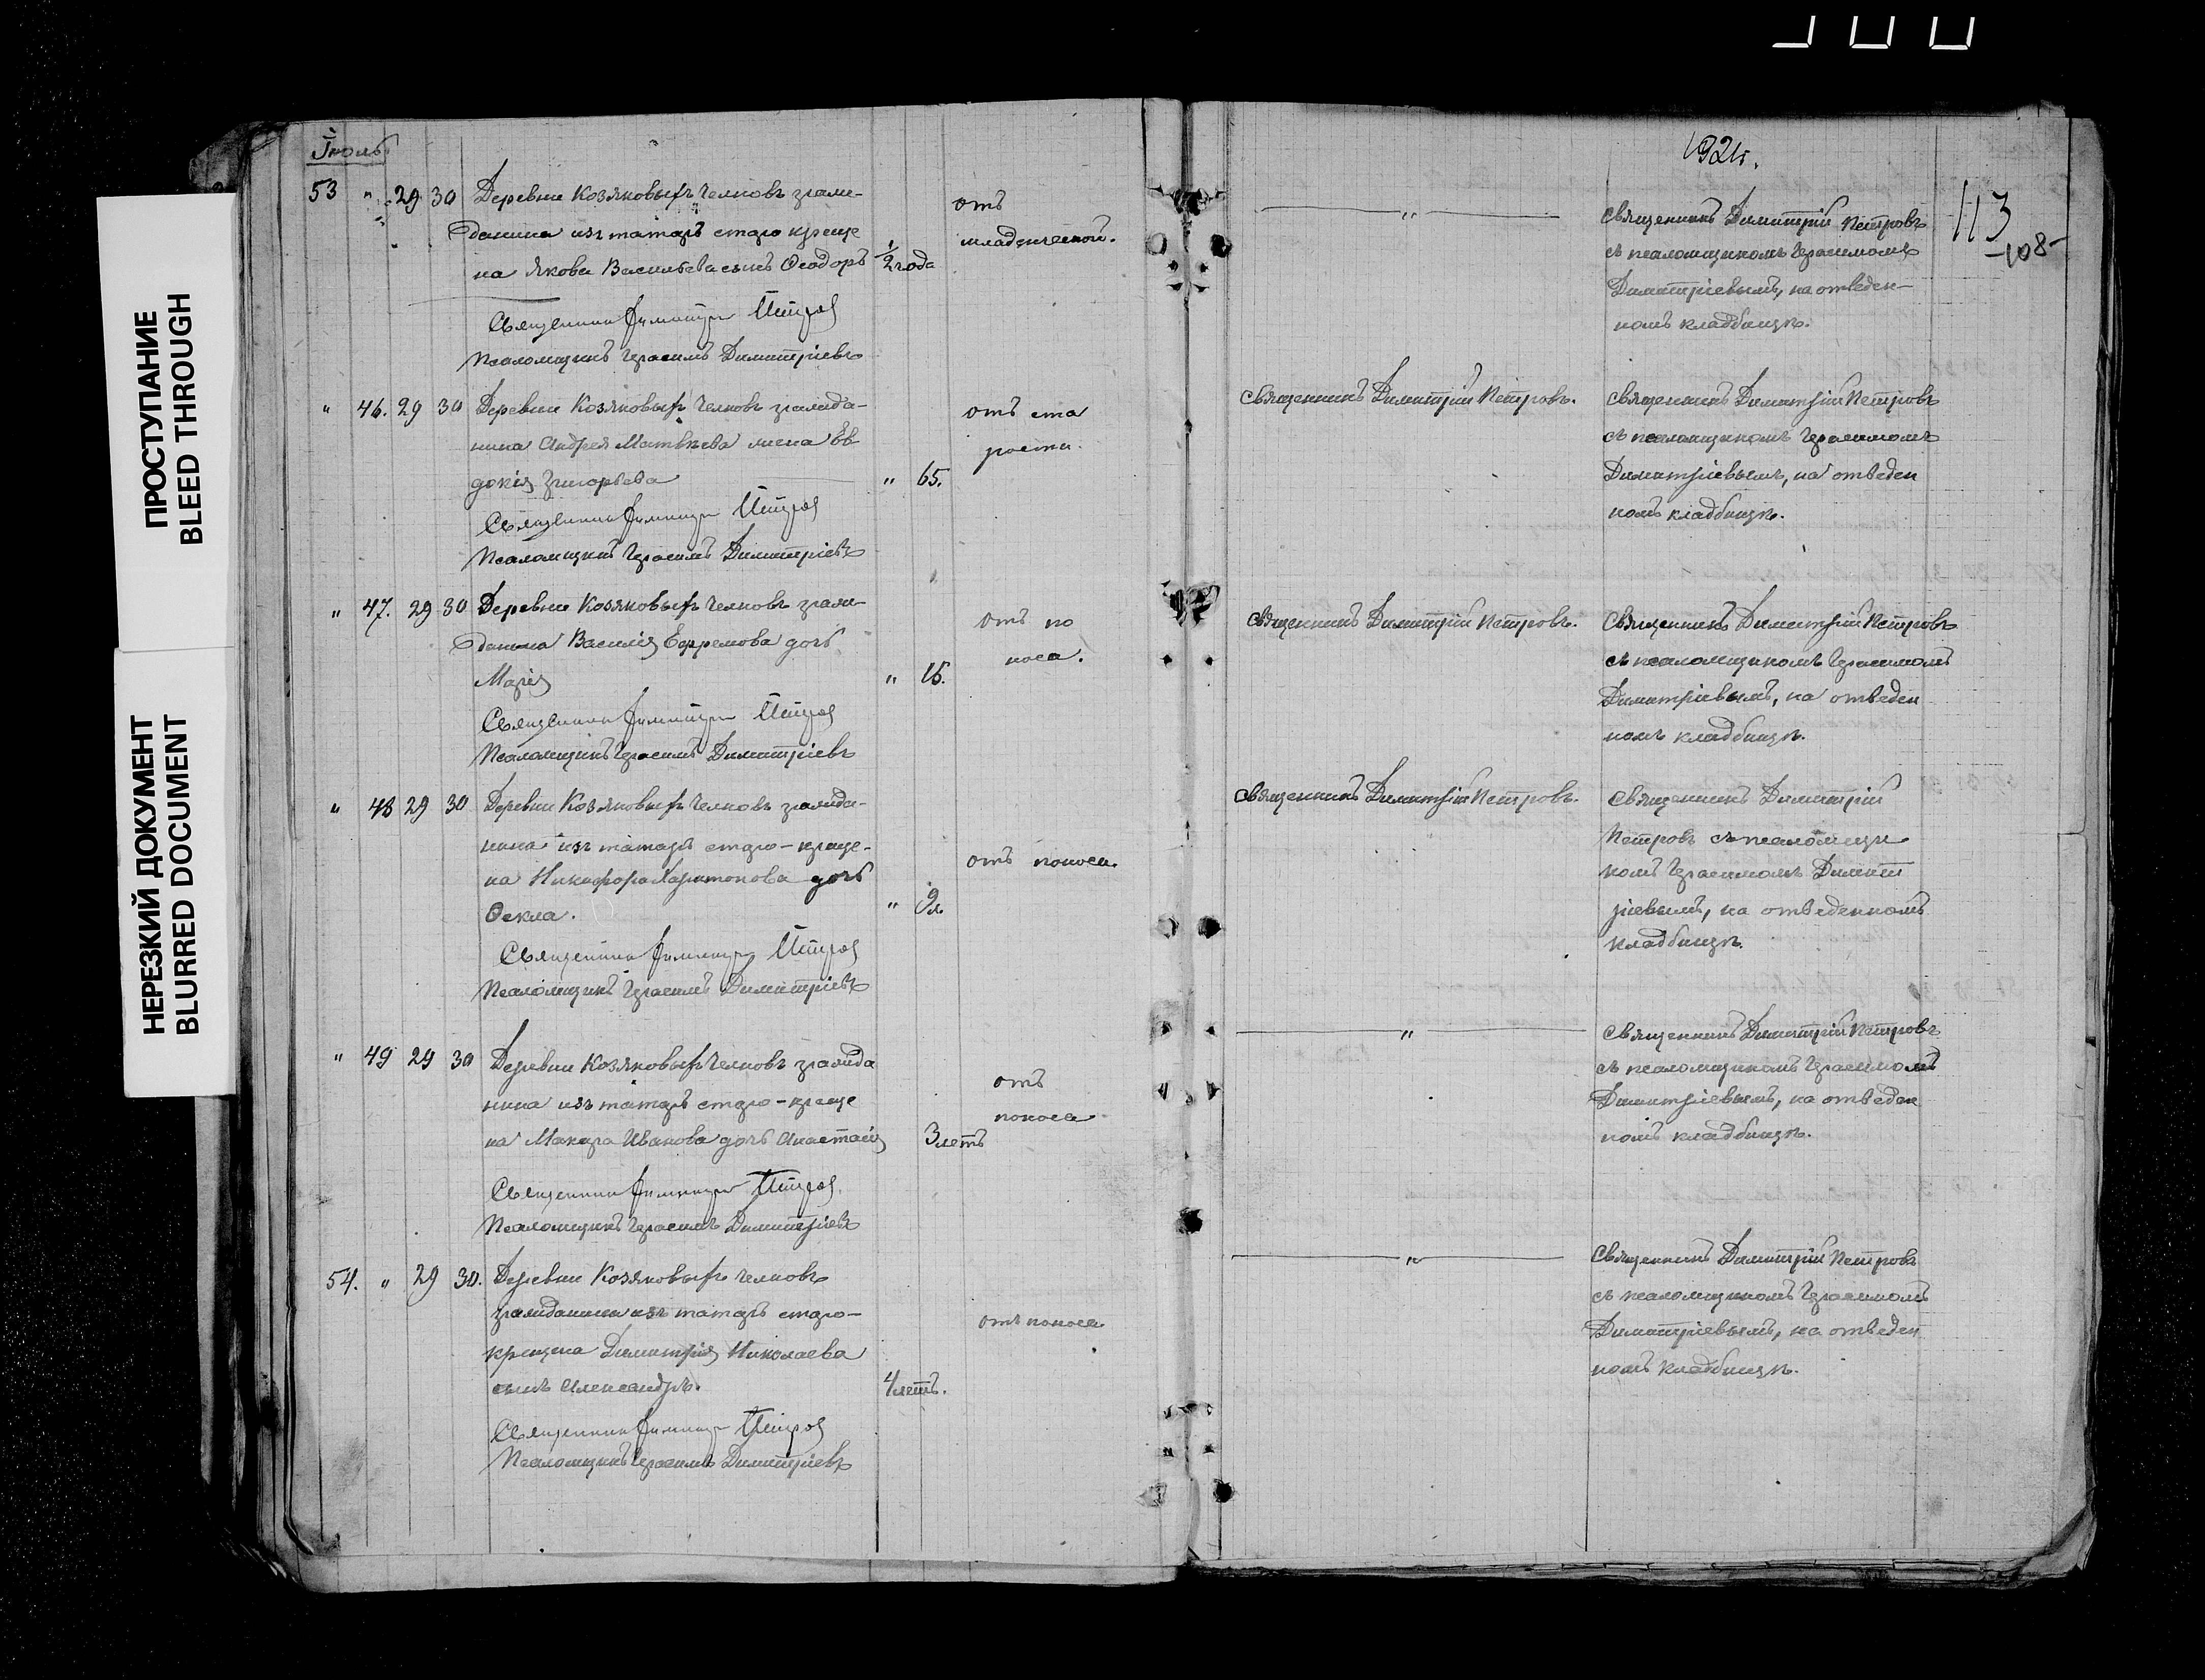 ПРОСТУПАНИЕ
BLEED THROUGH
НЕРЕЗКИЙ ДОКУМЕНТ
BLURRED DOCUMENT
Іюль
53 " 29 30 Деревни Козяковыхъ Челновъ граж-
данина изъ татаръ старо креще
на Якова Васильева сынъ Ѳеодоръ 1/2 года
отъ
младенческой.
Священникъ Димитрій Петровъ
Псаломщикъ Герасимъ Димитріевъ
" 46. 29 30 Деревни Козяковыхъ Челновъ гражда-
нина Андрея Матвѣева жена Ев
докія Григорьева " 65.
отъ ста
рости.
Священникъ Димитрій Петровъ
Псаломщикъ Герасимъ Димитріевъ
" 47. 29 30 Деревни Козяковыхъ Челновъ граж-
данина Василія Ефремова дочь
Марія " 15.
отъ по
носа.
Священникъ Димитрій Петровъ
Псаломщикъ Герасимъ Димитріевъ
" 48 29 30 Деревни Козяковыхъ Челновъ гражда-
нина изъ татаръ старо-креще-
на Никифора Харитонова дочь
Ѳекла. " 9 л.
отъ поноса.
Священникъ Димитрій Петровъ
Псаломщикъ Герасимъ Димитріевъ
" 49 29 30 Деревни Козяковыхъ Челновъ гражда
нина изъ татаръ старо-креще
на Макара Иванова дочь Анастасія 3 летъ
отъ
поноса
Священникъ Димитрій Петровъ
Псаломщикъ Герасимъ Димитріевъ
54. " 29 30. Деревни Козяковыхъ Челновъ
гражданина изъ татаръ старо-
крещена Димитрія Николаева
сынъ Александръ. 4 летъ.
отъ поноса
Священникъ Димитрій Петровъ
Псаломщикъ Герасимъ Димитріевъ
1921г.
113
-108-
"
Священникъ Димитрій Петровъ
съ псаломщикомъ Герасимомъ
Димитріевымъ, на отведен-
номъ кладбищѣ.
Священникъ Димитрій Петровъ.
Священникъ Димитрій Петровъ
съ псаломщикомъ Герасимомъ
Димитріевымъ, на отведен
номъ кладбищѣ.
Священникъ Димитрій Петровъ.
Священникъ Димитрій Петровъ
съ псаломщикомъ Герасимомъ
Димитріевымъ, на отведен
номъ кладбищѣ.
Священникъ Димитрій Петровъ.
Священникъ Димитрій
Петровъ съ псаломщи
комъ Герасимомъ Димит
ріевымъ, на отведенномъ
кладбищѣ.
"
Священникъ Димитрій Петровъ
съ псаломщикомъ Герасимомъ
Димитріевымъ, на отведен
номъ кладбищѣ.
"
Священникъ Димитрій Петровъ
съ псаломщикомъ Герасимомъ
Димитріевымъ, на отведен
номъ кладбищѣ.